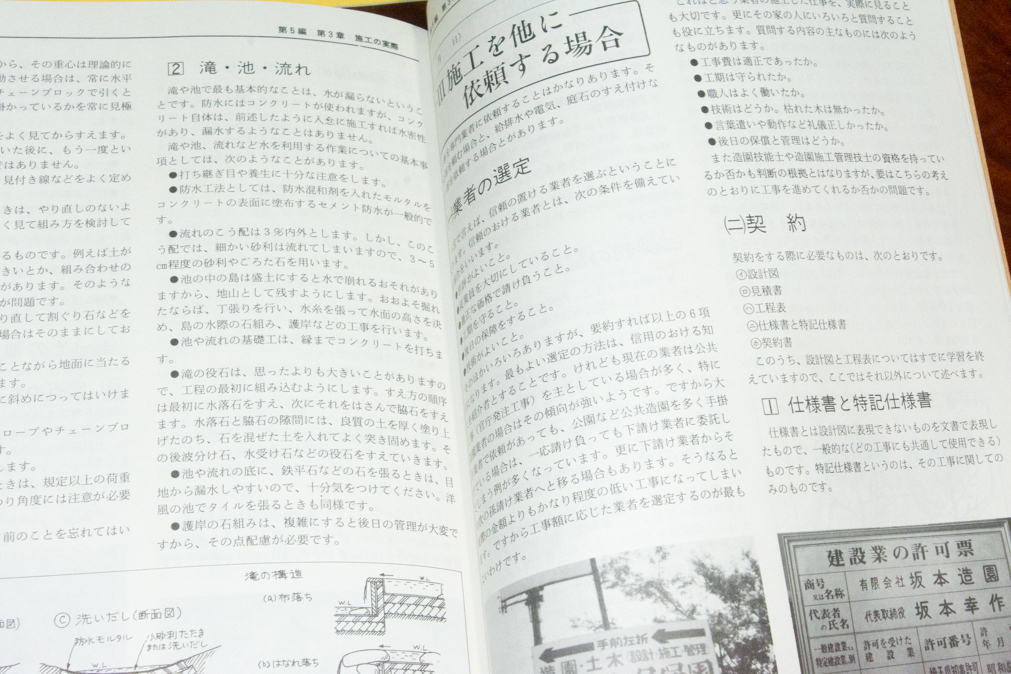 第5編 第3章 施工の実際
から、その重心は理論的に
動させる場合は、常に水平
チェーンブロックで引くと
掛かっているかを常に見極
をよく見てからすえます。
いた後に、もう一度とい
ではありません。
見付き線などをよく定め
きは、やり直しのないよ
く見て組み方を検討して
るものです。例えば土が
きいとか、組み合わせの
があります。そのような
が問題です。
り直して割ぐり石などを
場合はそのままにしてお
ことながら地面に当たる
ます。
に斜めにつってはいけま
ロープやチェーンブロ
す。
します。
ときは、規定以上の荷重
つり角度には注意が必要
前のことを忘れてはい
2 滝・池・流れ
滝や池で最も基本的なことは、水が漏らないというこ
とです。防水にはコンクリートが使われますが、コンク
リート自体は、前述したように入念に施工すれば水密性
があり、漏水するようなことはありません。
滝や池、流れなど水を利用する作業についての基本事
項としては、次のようなことがあります。
●打ち継ぎ目や養生に十分な注意をします。
●防水工法としては、防水混和剤を入れたモルタルを
コンクリートの表面に塗布するセメント防水が一般的で
す。
●流れのこう配は3%内外とします。しかし、このこ
う配では、細かい砂利は流れてしまいますので、3〜5
cm程度の砂利やごろた石を用います。
●池の中の島は盛土にすると水で崩れるおそれがあり
ますから、地山として残すようにします。おおよそ掘れ
たならば、丁張りを行い、水糸を張って水面の高さを決
め、島の水際の石組み、護岸などの工事を行います。
●池や流れの基礎工は、縁までコンクリートを打ちま
す。
●滝の役石は、思ったよりも大きいことがありますの
で、工程の最初に組み込むようにします。すえ方の順序
は最初に水落石をすえ、次にそれをはさんで脇石をすえ
ます。水落石と脇石の隙間には、良質の土を厚く塗り上
げたのち、石を混ぜた土を入れてよく突き固めます。そ
の後波分け石、水受け石などの役石をすえていきます。
●池や流れの底に、鉄平石などの石を張るときは、目
地から漏水しやすいので、十分気をつけてください。洋
風の池でタイルを張るときも同様です。
●護岸の石組みは、複雑にすると後日の管理が大変で
すから、その点配慮が必要です。
滝の構造
(a)布落ち
W.L
(b)はなれ落ち
C 洗いだし(断面図)
防水モルタル
小砂利たたき
または洗いだし
W.L
施工を他に
依頼する場合
専門業者に依頼することはかなりあります。そ
頼む場合と、給排水や電気、庭石のすえ付けな
依頼する場合とがあります。
業者の選定
で言えば、信頼の置ける業者を選ぶということに
す。信頼のおける業者とは、次の条件を備えてい
いいます。
がよいこと。
員を大切にしていること。
正な価格で請け負うこと。
を守ること。
の保障をすること。
がよいこと。
はいろいろありますが、要約すれば以上の6項
なります。最もよい選定の方法は、信用のおける知
紹介者とすることです。けれども現在の業者は公共
(官庁発注工事)を主としている場合が多く、特に
業者の場合はその傾向が強いようです。ですから大
者で依頼があっても、公園など公共造園を多く手掛
ている場合は、一応請け負っても下請け業者に委託し
まう例が多くなっています。更に下請け業者からそ
次の孫請け業者へと移る場合もあります。そうなると
の金額よりもかなり程度の低い工事になってしまい
す。ですから工事額に応じた業者を選定するのが最も
いわけです。
これはと思う業者の施工した仕事を、実際に見ること
も大切です。更にその家の人にいろいろと質問すること
も役に立ちます。質問する内容の主なものには次のよう
なものがあります。
●工事費は適正であったか。
●工期は守られたか。
●職人はよく働いたか。
●技術はどうか。枯れた木は無かったか。
●言葉遣いや動作など礼儀正しかったか。
●後日の保償と管理はどうか。
また造園技能士や造園施工管理技士の資格を持ってい
るか否かも判断の根拠とはなりますが、要はこちらの考え
のとおりに工事を進めてくれるか否かの問題です。
㈡契 約
契約をする際に必要なものは、次のとおりです。
㋑設計図
㋺見積書
㋩工程表
㋥仕様書と特記仕様書
㋭契約書
このうち、設計図と工程表についてはすでに学習を終
えていますので、ここではそれ以外について述べます。
1 仕様書と特記仕様書
仕様書とは設計図に表現できないものを文書で表現し
たもので、一般的な(どの工事にも共通して使用できる)
ものです。特記仕様書というのは、その工事に関しての
みのものです。
手前左折
造園・土木 設計・施工・管理
建設業の許可票
商号又は名称 有限会社 坂本造園
代表者の氏名 代表取締役 坂本幸作
許可を受けた建設業 許可番号